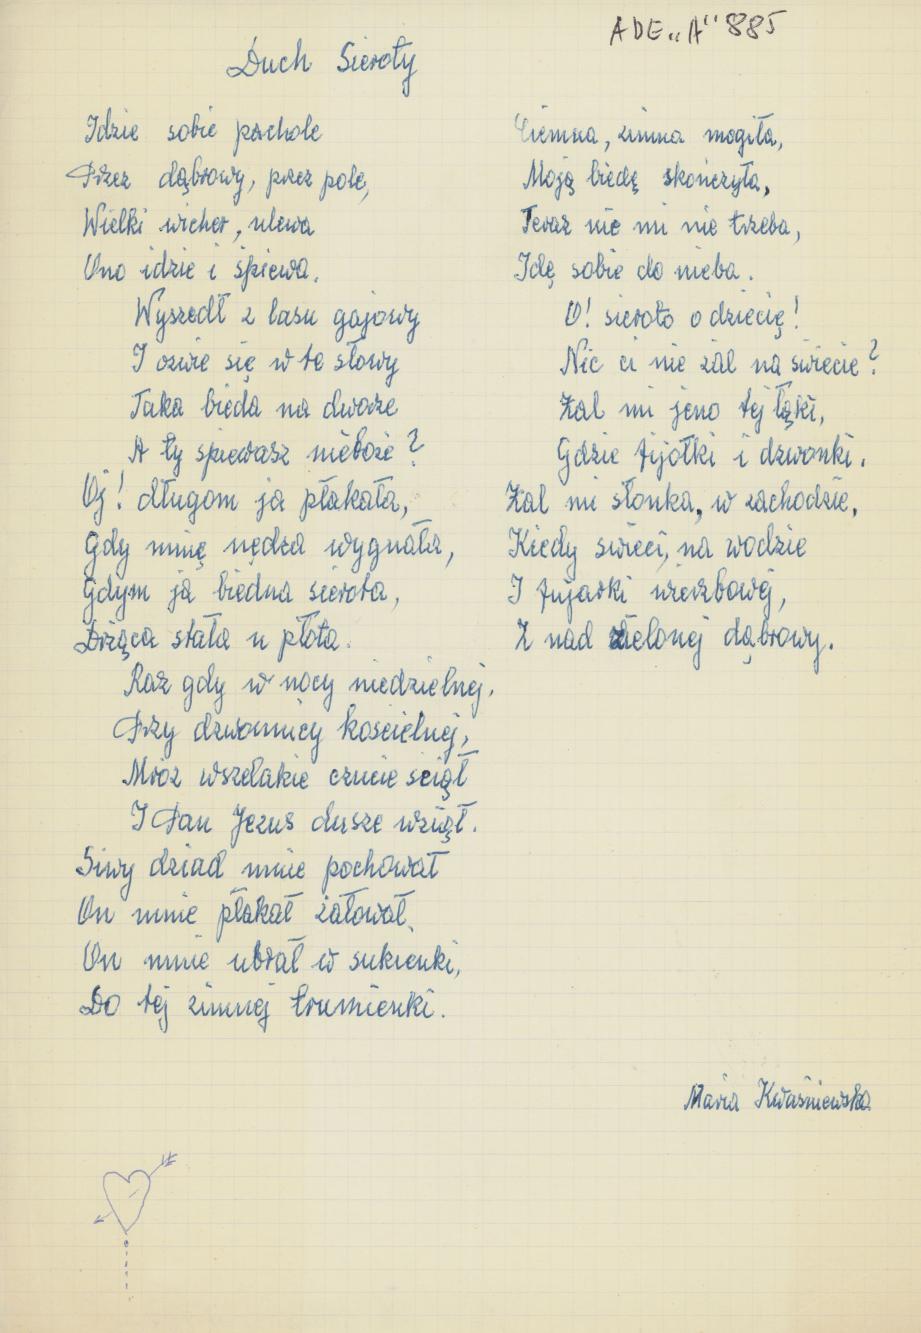 ADE „A" 885
Duch Sieroty
Idzie sobie pachole
Przez dąbrowy, przez pole,
Wielki wicher, ulewa
Ono idzie i śpiewa.
Wyszedł z lasu gajowy
I ozwie się w te słowy
Taka bieda na dworze
A ty śpiewasz nieboże?
Oj! długom ja płakała,
Gdy mnię nędza wygnała,
Gdym ja biedna sierota,
Drżąca stała u płota.
Raz gdy w nocy niedzielnej,
Przy dzwonnicy kościelnej,
Mróz wszelakie czucie sciął
I Pan Jezus dusze wziął.
Siwy dziad mnie pochował
On mnie płakał żałował,
On mnie ubrał w sukienki,
Do tej zimnej trumienki.
Ciemna, zimna mogiła,
Moją biedę skończyła,
Teraz nic mi nie trzeba,
Idę sobie do nieba.
O! sieroto o dziecię!
Nic ci nie żal na świecie?
Żal mi jeno tej łąki,
Gdzie fijołki i dzwonki.
Żal mi słonka, w zachodzie,
Kiedy świeci, na wodzie
I fujarki wierzbowej,
Z nad zielonej dąbrowy.
Maria Kwaśniewska